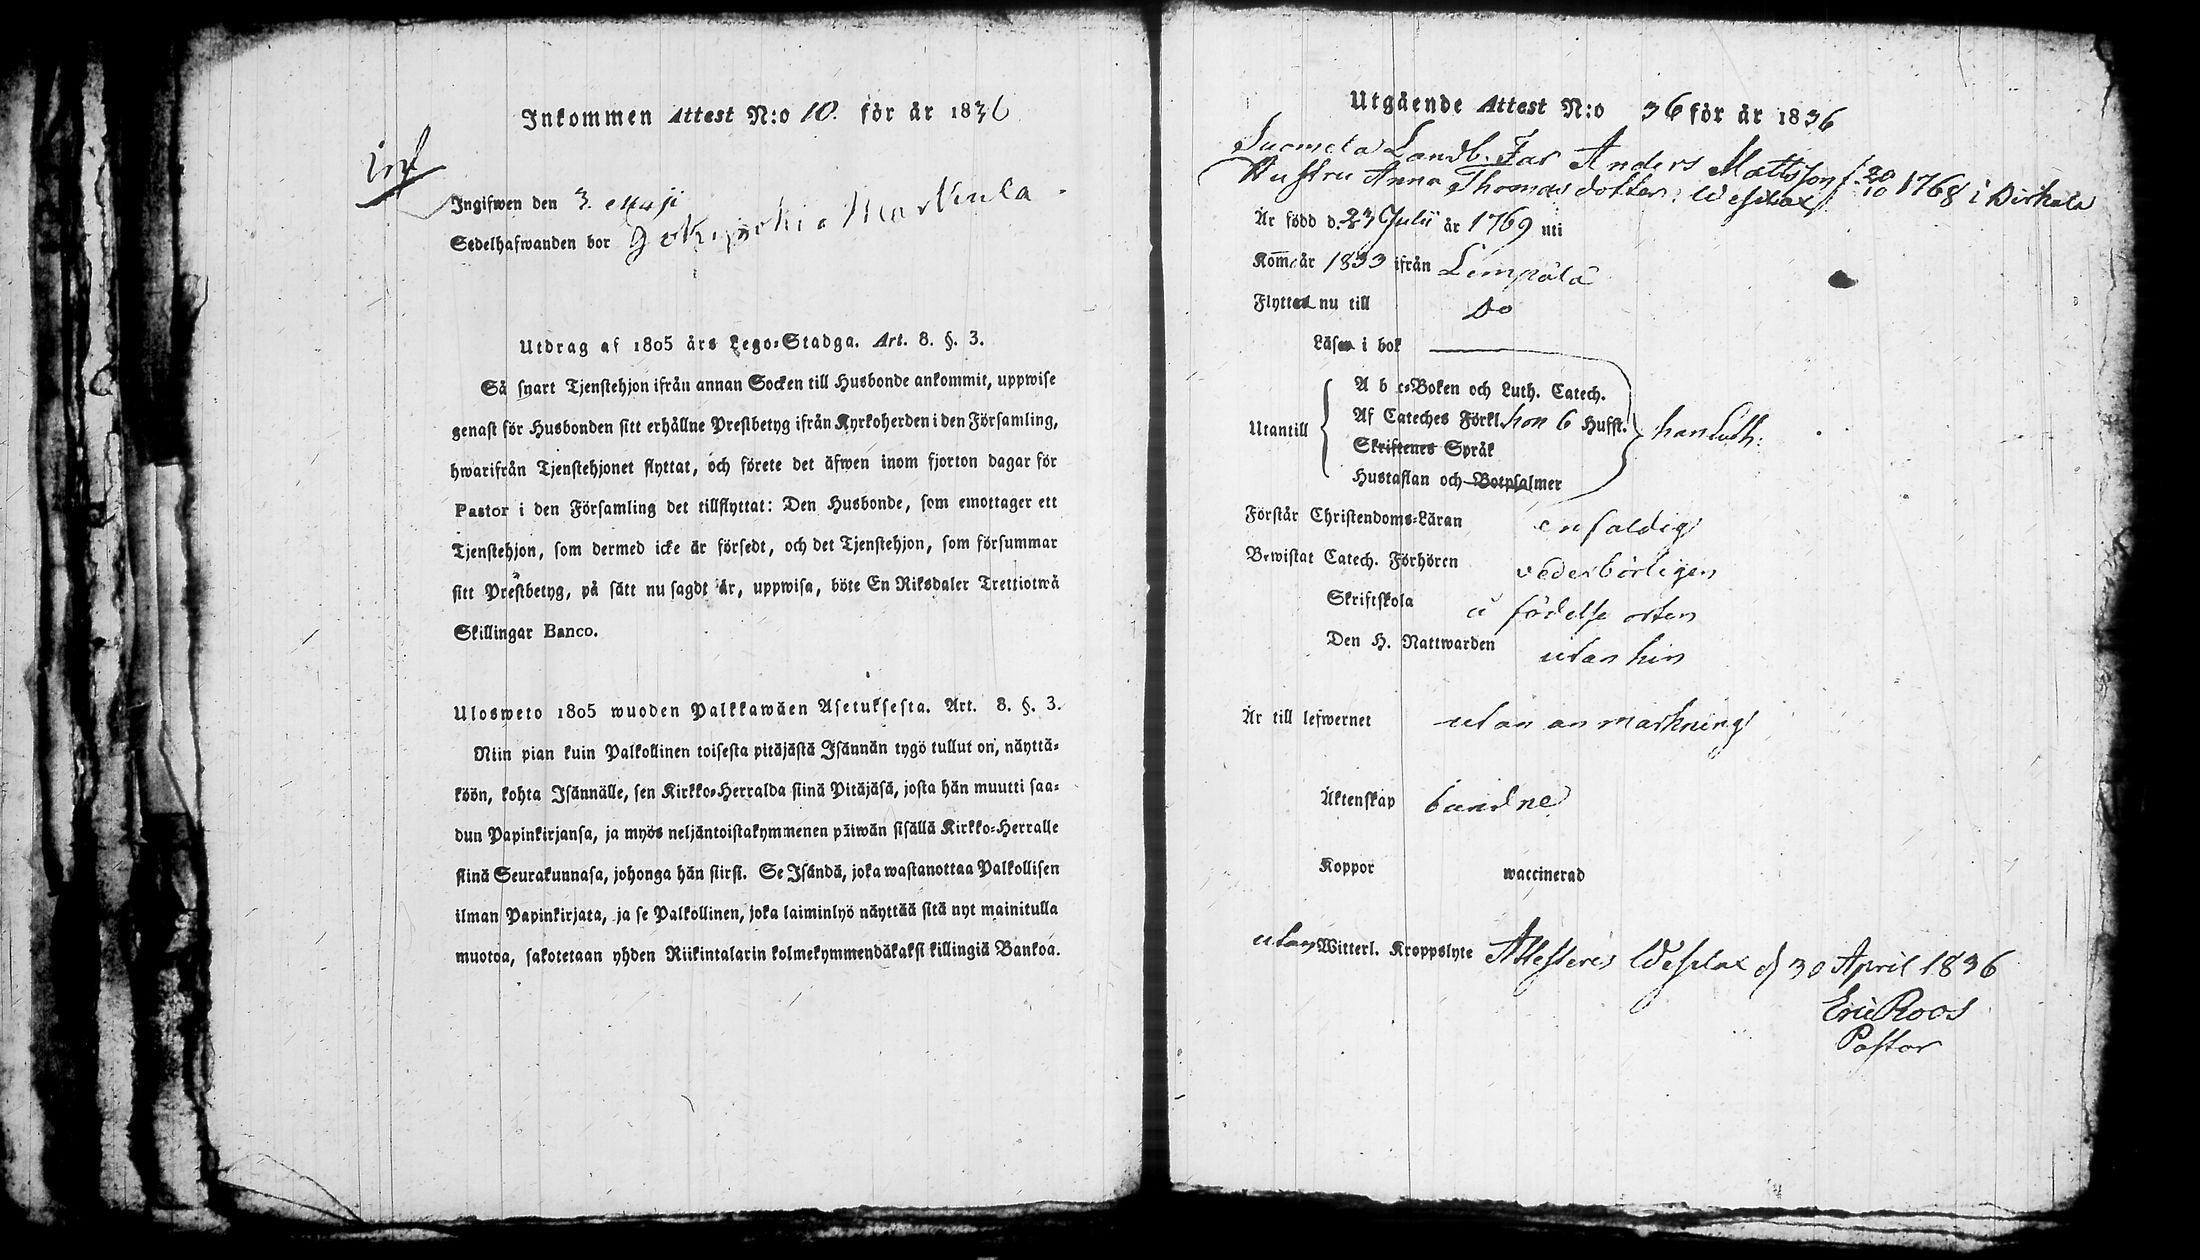 Inkommen Attest N:o 10. för år 1836
inf
Ingifwen den 3. Maji
Sedelhafwanden bor Markula
Utdrag af 1805 års Lego-Stadga. Art. 8. §. 3.
Så snart Tjenstehjon ifrån annan Socken till Husbonde ankommit, uppwise
genast för Husbonden sitt erhållne Prestbetyg ifrån Kyrkoherden i den Församling,
hwarifrån Tjenstehjonet flyttat, och förete det äfwen inom fjorton dagar för
Pastor i den Församling det tillflyttat: Den Husbonde, som emottager ett
Tjenstehjon, som dermed icke är försedt, och det Tjenstehjon, som försummar
sitt Prestbetyg, på sätt nu sagdt är, uppwisa, böte En Riksdaler Trettiotwå
Skillingar Banco.
Ulosweto 1805 wuoden Palkkawäen Asetuksesta. Art. 8. §. 3.
Niin pian kuin Palkollinen toisesta pitäjästä Isännän tygö tullut on, näyttä-
köön, kohta Isännälle, sen Kirkko-Herralda siinä Pitäjäsä, josta hän muutti saa-
dun Papinkirjansa, ja myös neljäntoistakymmenen päiwän sisällä Kirkko-Herralle
siinä Seurakunnasa, johonga hän siirsi. Se Isändä, joka wastanottaa Palkollisen
ilman Papinkirjata, ja se Palkollinen, joka laiminlyö näyttää sitä nyt mainitulla
muotoa, sakotetaan yhden Riikintalarin kolmekymmendäkaksi killingiä Bankoa.
Utgående Attest N:o 36 för år 1836
Suomela Landb. Far Anders Mattsson f. 20/10 1768 i Birkala
Hustru Anna Thomas dotter: Wesilax
Är född d. 23 Julii år 1769 uti
Kom̅ år 1833 ifrån Lempälä
Flytta nu till Do
Läsa i bok
A b c-Boken och Luth. Catech.
Utantill Af Cateches Förkl. hon 6 Hufst. han Luth:
Skriftenes Språk
Hustaflan och Botpsalmer
Förstår Christendoms-Läran enfaldig
Bewistat Catech. Förhören vederbörligen
Skriftskola i födelse orten
Den H. Nattwarden utan hin
Är till lefwernet utan anmärkning
Äktenskap bundne
Koppor waccinerad
utan Witterl. Kroppslyte Attesteras Wesilax d 30 April 1836
Eric Roos
Pastor